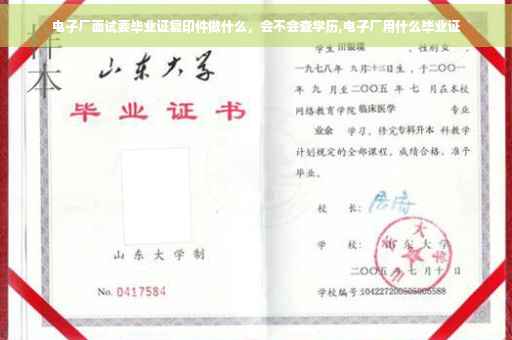 电子厂面试要毕业证复印件做什么，会不会查学历,电子厂用什么毕业证
样本
山东大学
毕业证书
山东大学制
No. 0417584
学生 田银瑞 ，性别 女 ，
一九七八年 九月十三日生，于二〇〇一
年 九 月至二〇〇五 年 七 月在本校
网络教育学院 临床医学 专业
业余 学习，修完 专科升本 科教学
计划规定的全部课程，成绩合格，准予
毕业。
校 长：
学 校：山东大学
二〇〇五 年 七 月 十 日
学校编号:104227200505005588